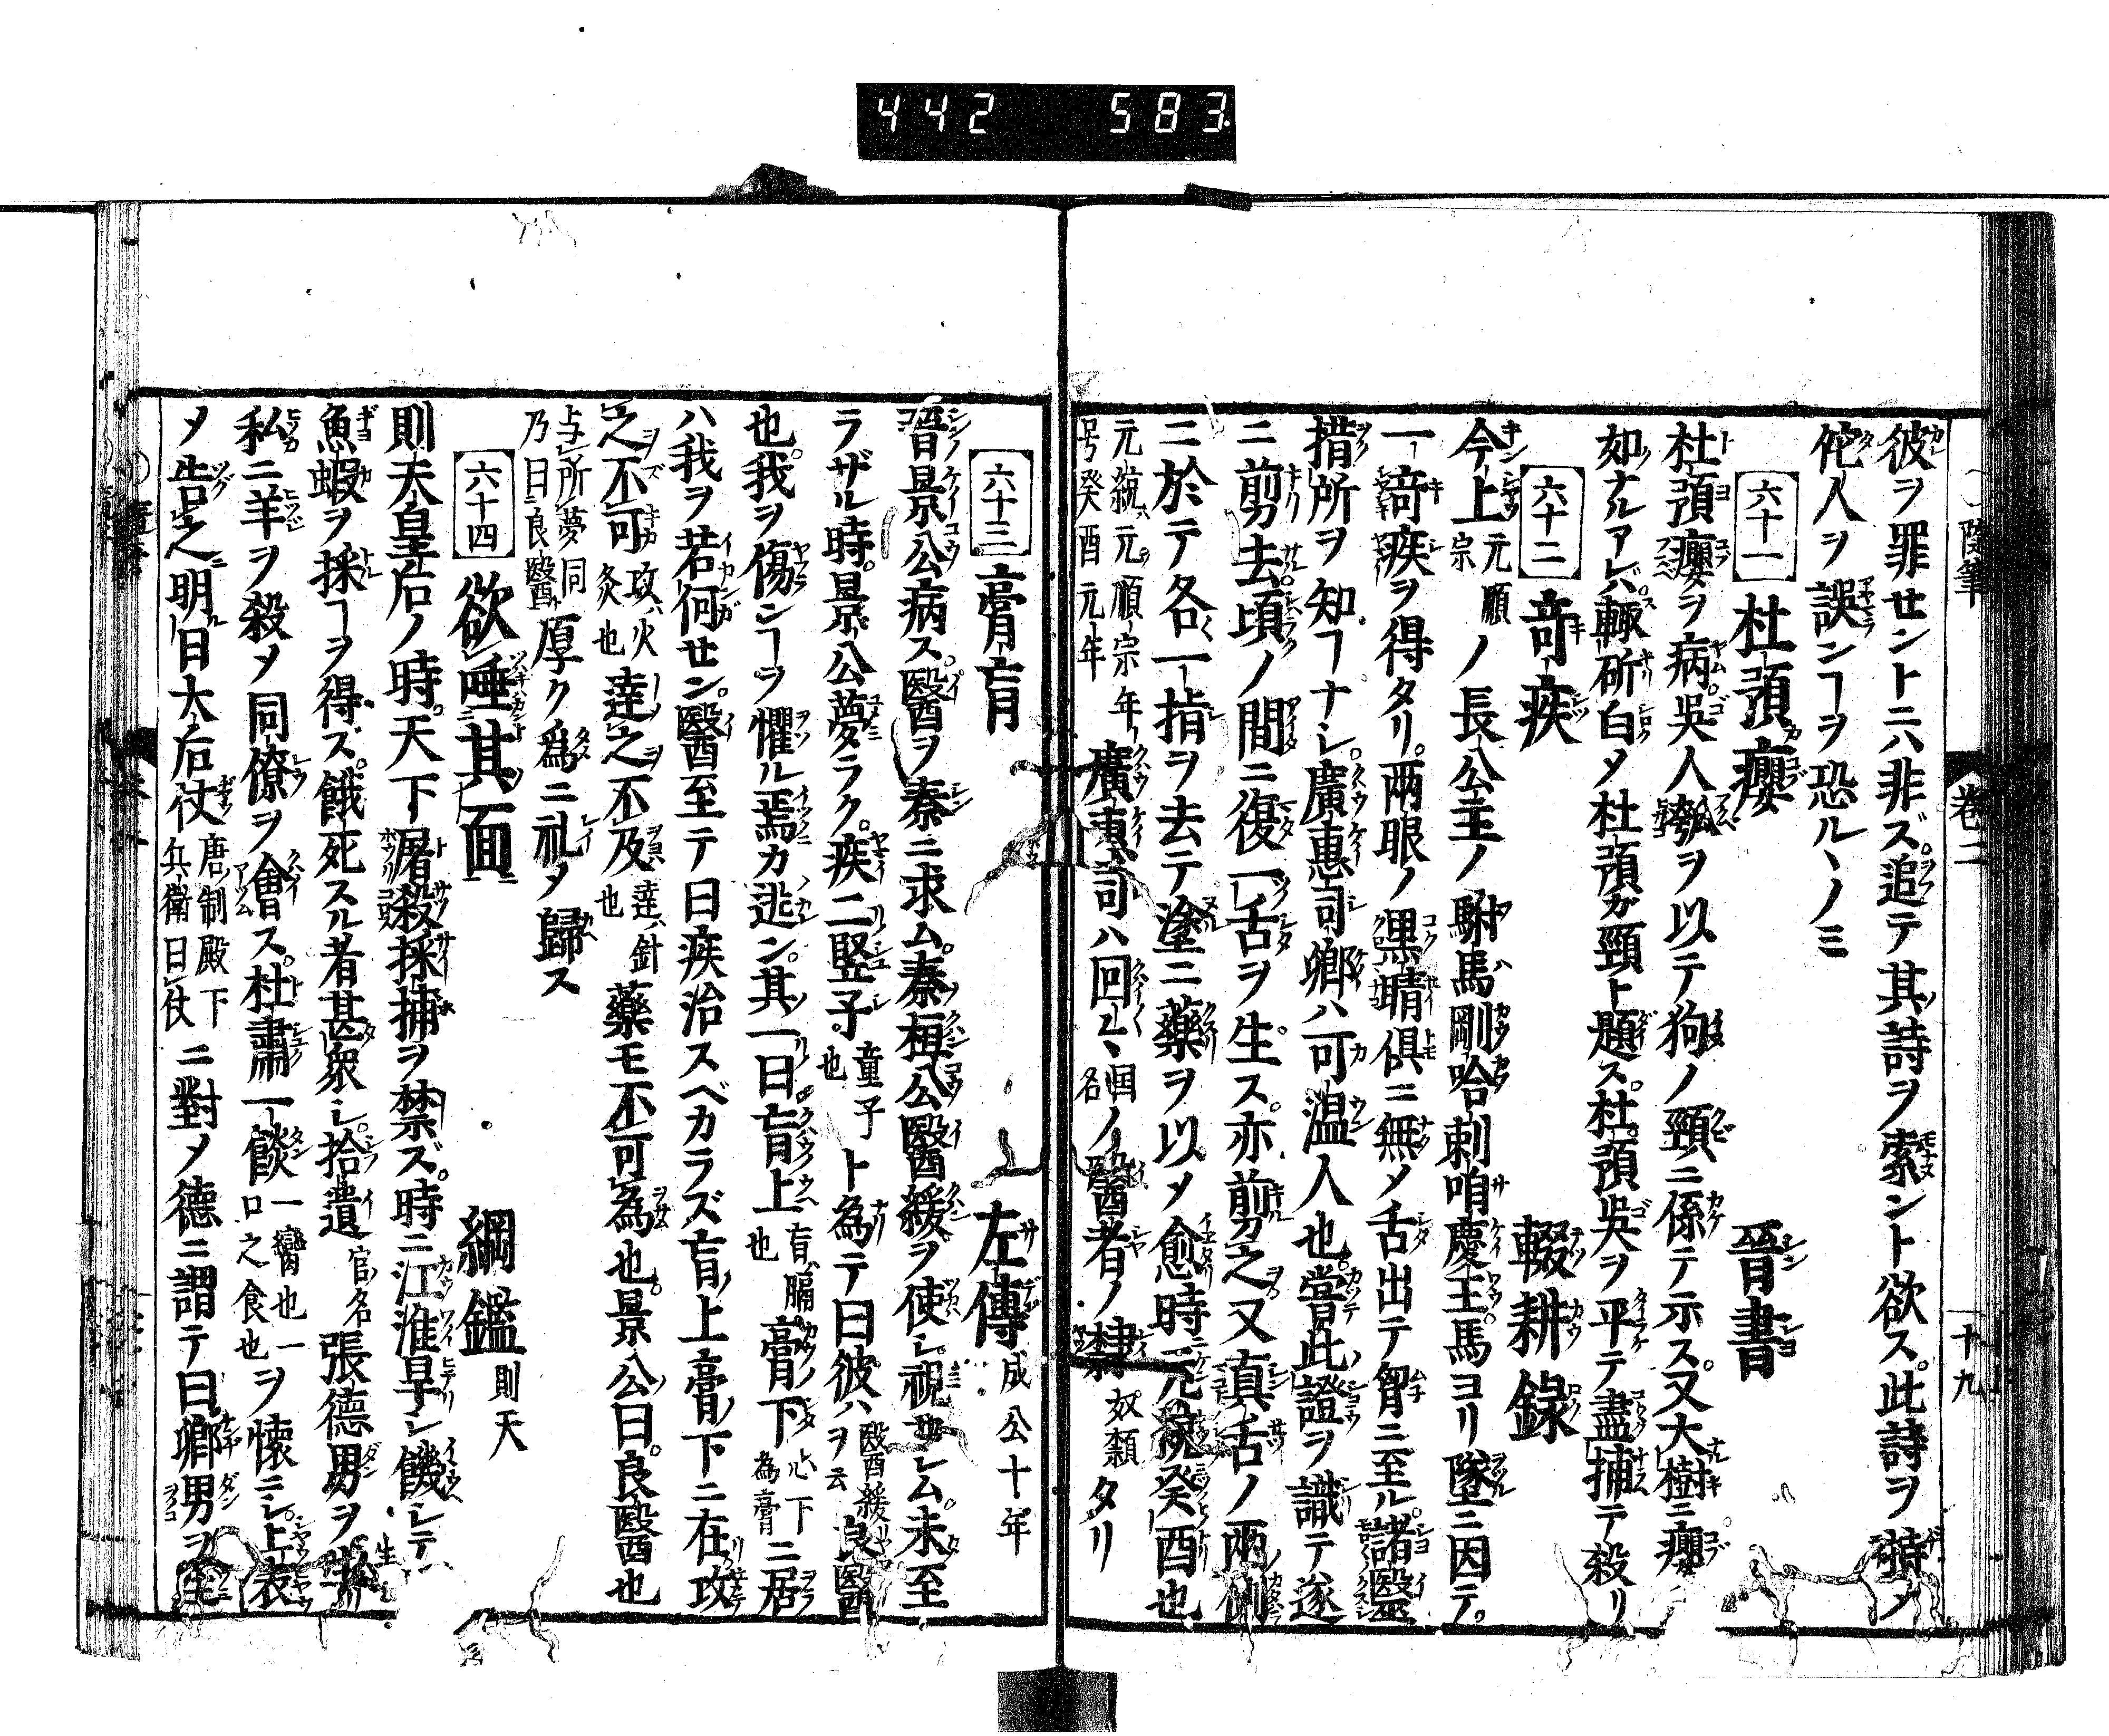 442 583
卷二
十九
彼ヲ罪セントニハ非ズ追テ其詩ヲ索ント欲ス此詩ヲ持メ
佗人ヲ誤ンヿヲ恐ルヽノミ
六十一 杜預癭 晉書
杜預癭ヲ病呉人瓠ヲ以テ狗ノ頸ニ係テ示ス又大樹ニ癭
如ナルアレバ輙斫白メ杜預ガ頸ト題ス杜預呉ヲ平テ盡捕テ殺リ
六十二 竒疾 輟耕錄
今上元順宗ノ長公主ノ駙馬剛哈剌咱慶王馬ヨリ墜ニ因テ
一竒疾ヲ得タリ兩眼ノ黒睛倶ニ無メ舌出テ胷ニ至ル諸醫
措所ヲ知ヿナシ廣惠司卿ハ可温人也嘗此證ヲ識テ遂
ニ剪去頃ノ間ニ復一舌ヲ生ス亦剪之又真舌ノ兩側
ニ於テ各一指ヲ去テ塗ニ藥ヲ以メ愈時元統癸酉也
元統ハ元ノ順宗年号癸酉元年 廣惠司ハ回々国名ノ醫者ノ隷奴類タリ
六十三 膏肓 左傳成公十年
晉景公病ス醫ヲ秦ニ求ム秦桓公醫緩ヲ使レ視セレム未至
ラザル時景公夢ラク疾二竪子童子也ト為テ曰彼ハ醫緩ヲ云良醫
也我ヲ傷ンヿヲ懼ル焉カ逃ン其一曰肓上肓ハ膈也膏下心下為膏ニ居
ハ我ヲ若何セン醫至テ曰疾治スベカラズ肓ノ上膏ノ下ニ在攻
之不可攻ハ火灸也達之不及達ハ針也藥モ不可為也景公曰良醫也
与所夢同乃曰良醫ト厚ク為ニ礼メ歸ス
六十四 欲唾其面 綱鑑則天
則天皇后ノ時天下屠殺採捕ヲ禁ズ時ニ江淮旱レ饑レテ
魚蝦ヲ採ヿヲ得ズ餓死スル者甚衆レ拾遺官名張德男ヲ生
私ニ羊ヲ殺メ同僚ヲ會ス杜肅一餤一臠也一口之食也ヲ懐ニレ上表
メ告之明日大后仗唐ノ制殿下兵衛曰仗ニ對メ德ニ謂テ曰卿男ヲ生